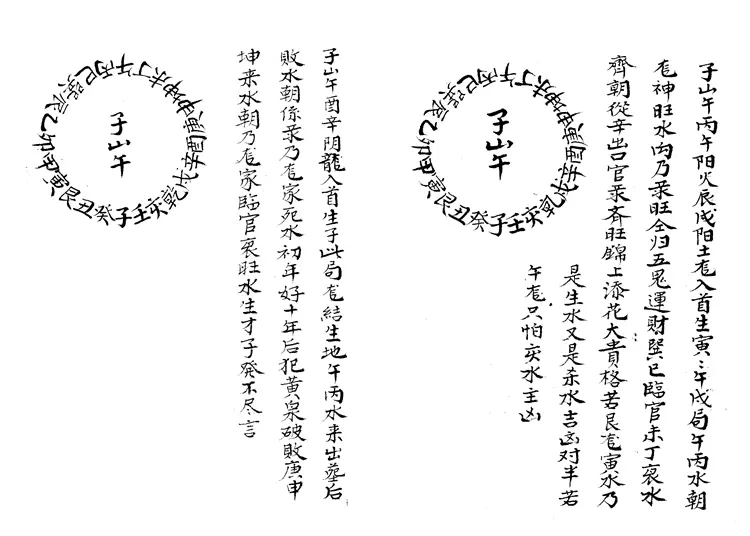 子山午
子癸丑艮寅甲卯乙辰巽巳丙午丁未坤申庚酉辛戌乾亥壬
子山午丙午阳火辰戌阳土龙入首生寅〻午戌局午丙水朝
龙神旺水内乃杀旺全归五鬼運財巽巳臨官未丁衰水
齊朝從辛出口官杀齐旺錦上添花大貴格若艮龙寅水乃
是生水又是杀水吉凶对半若
午龙只怕亥水主凶
子山午
子癸丑艮寅甲卯乙辰巽巳丙午丁未坤申庚酉辛戌乾亥壬
子山午酉辛阴龍入首生子此局龙結生地午丙水来出墓后
敗水朝係杀乃龙家死水初年好十年后犯黃泉破敗庚申
坤来水朝乃龙家臨官衰旺水生才子發不尽言